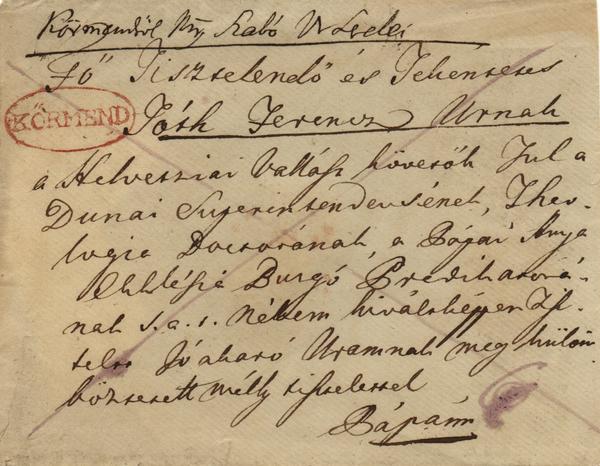 Körmendről Szabó Ur
Fő Tisztelendő és Tekentetes
KÖRMEND
Tóth Ferencz Urnak
a Helvetziai Vallást követők Tul a
Dunai Superintendensének, Theo-
logia Doctorának, a Pápai Anya
Ekklésia Buzgó Predikátorá-
nak s.a.t. Nékem kiváltképpen Tisz-
telt Jóakaró Uramnak meg külöm
bözte­tett mély tisztelettel
Pápánn